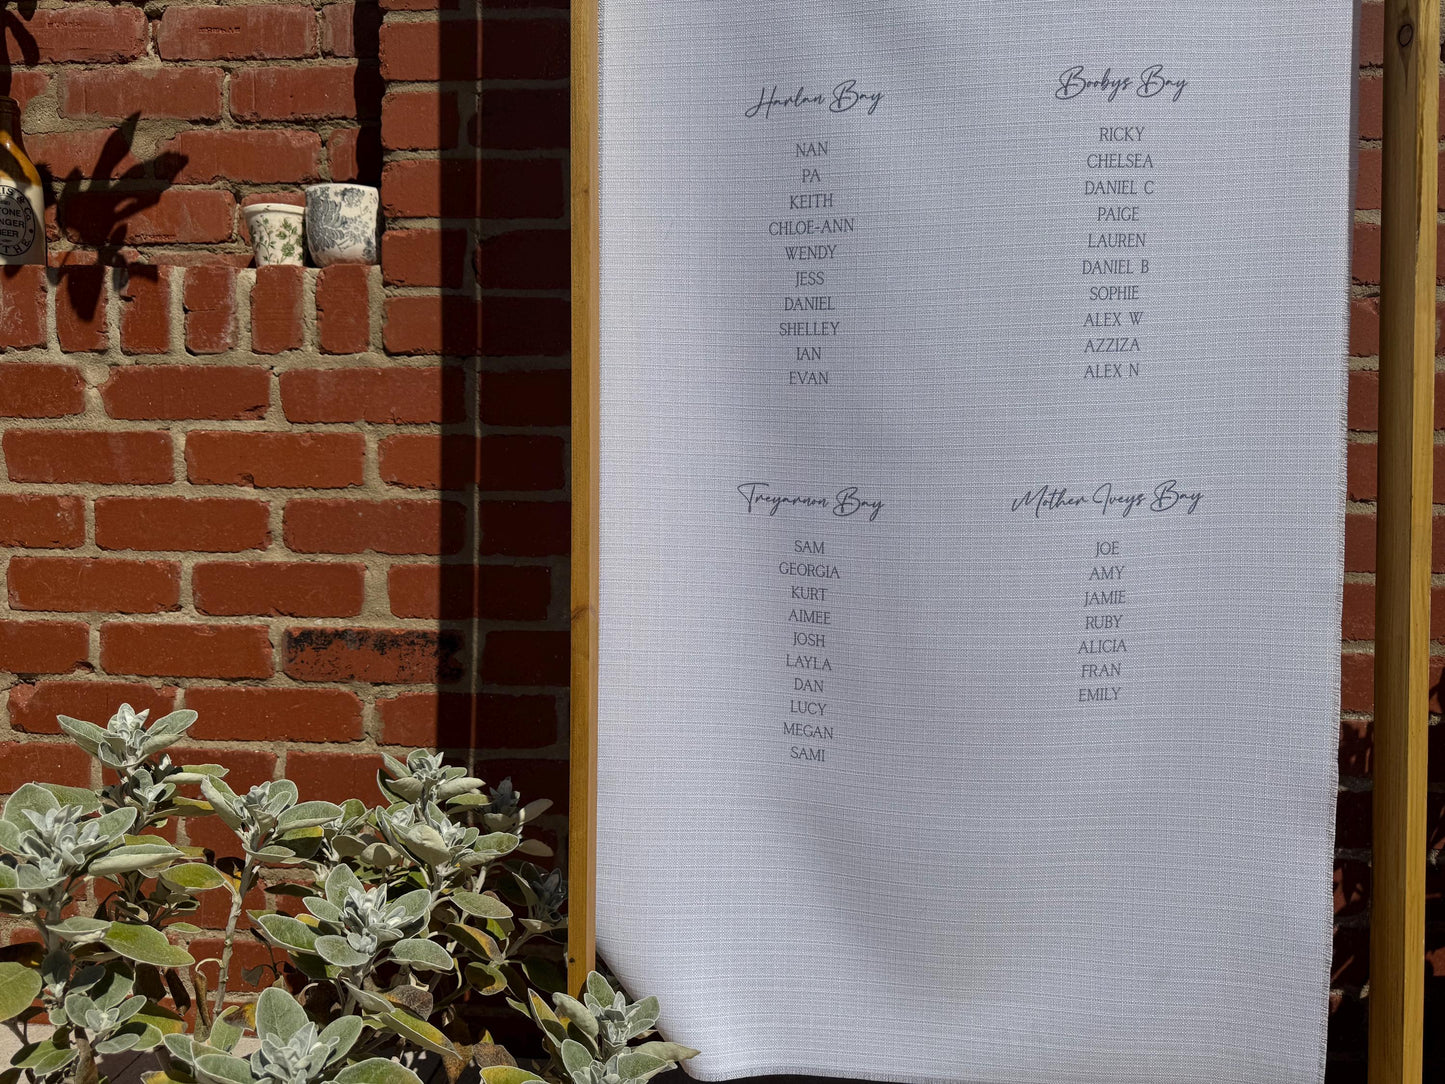 Harlan Bay
NAN
PA
KEITH
CHLOE-ANN
WENDY
JESS
DANIEL
SHELLEY
IAN
EVAN
Boobys Bay
RICKY
CHELSEA
DANIEL C
PAIGE
LAUREN
DANIEL B
SOPHIE
ALEX W
AZZIZA
ALEX N
Treyarnon Bay
SAM
GEORGIA
KURT
AIMEE
JOSH
LAYLA
DAN
LUCY
MEGAN
SAMI
Mother Iveys Bay
JOE
AMY
JAMIE
RUBY
ALICIA
FRAN
EMILY